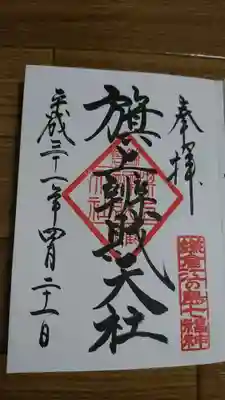 奉拝
鎌倉江の島七福神
旗上辨財天社
平成三十一年四月二十一日